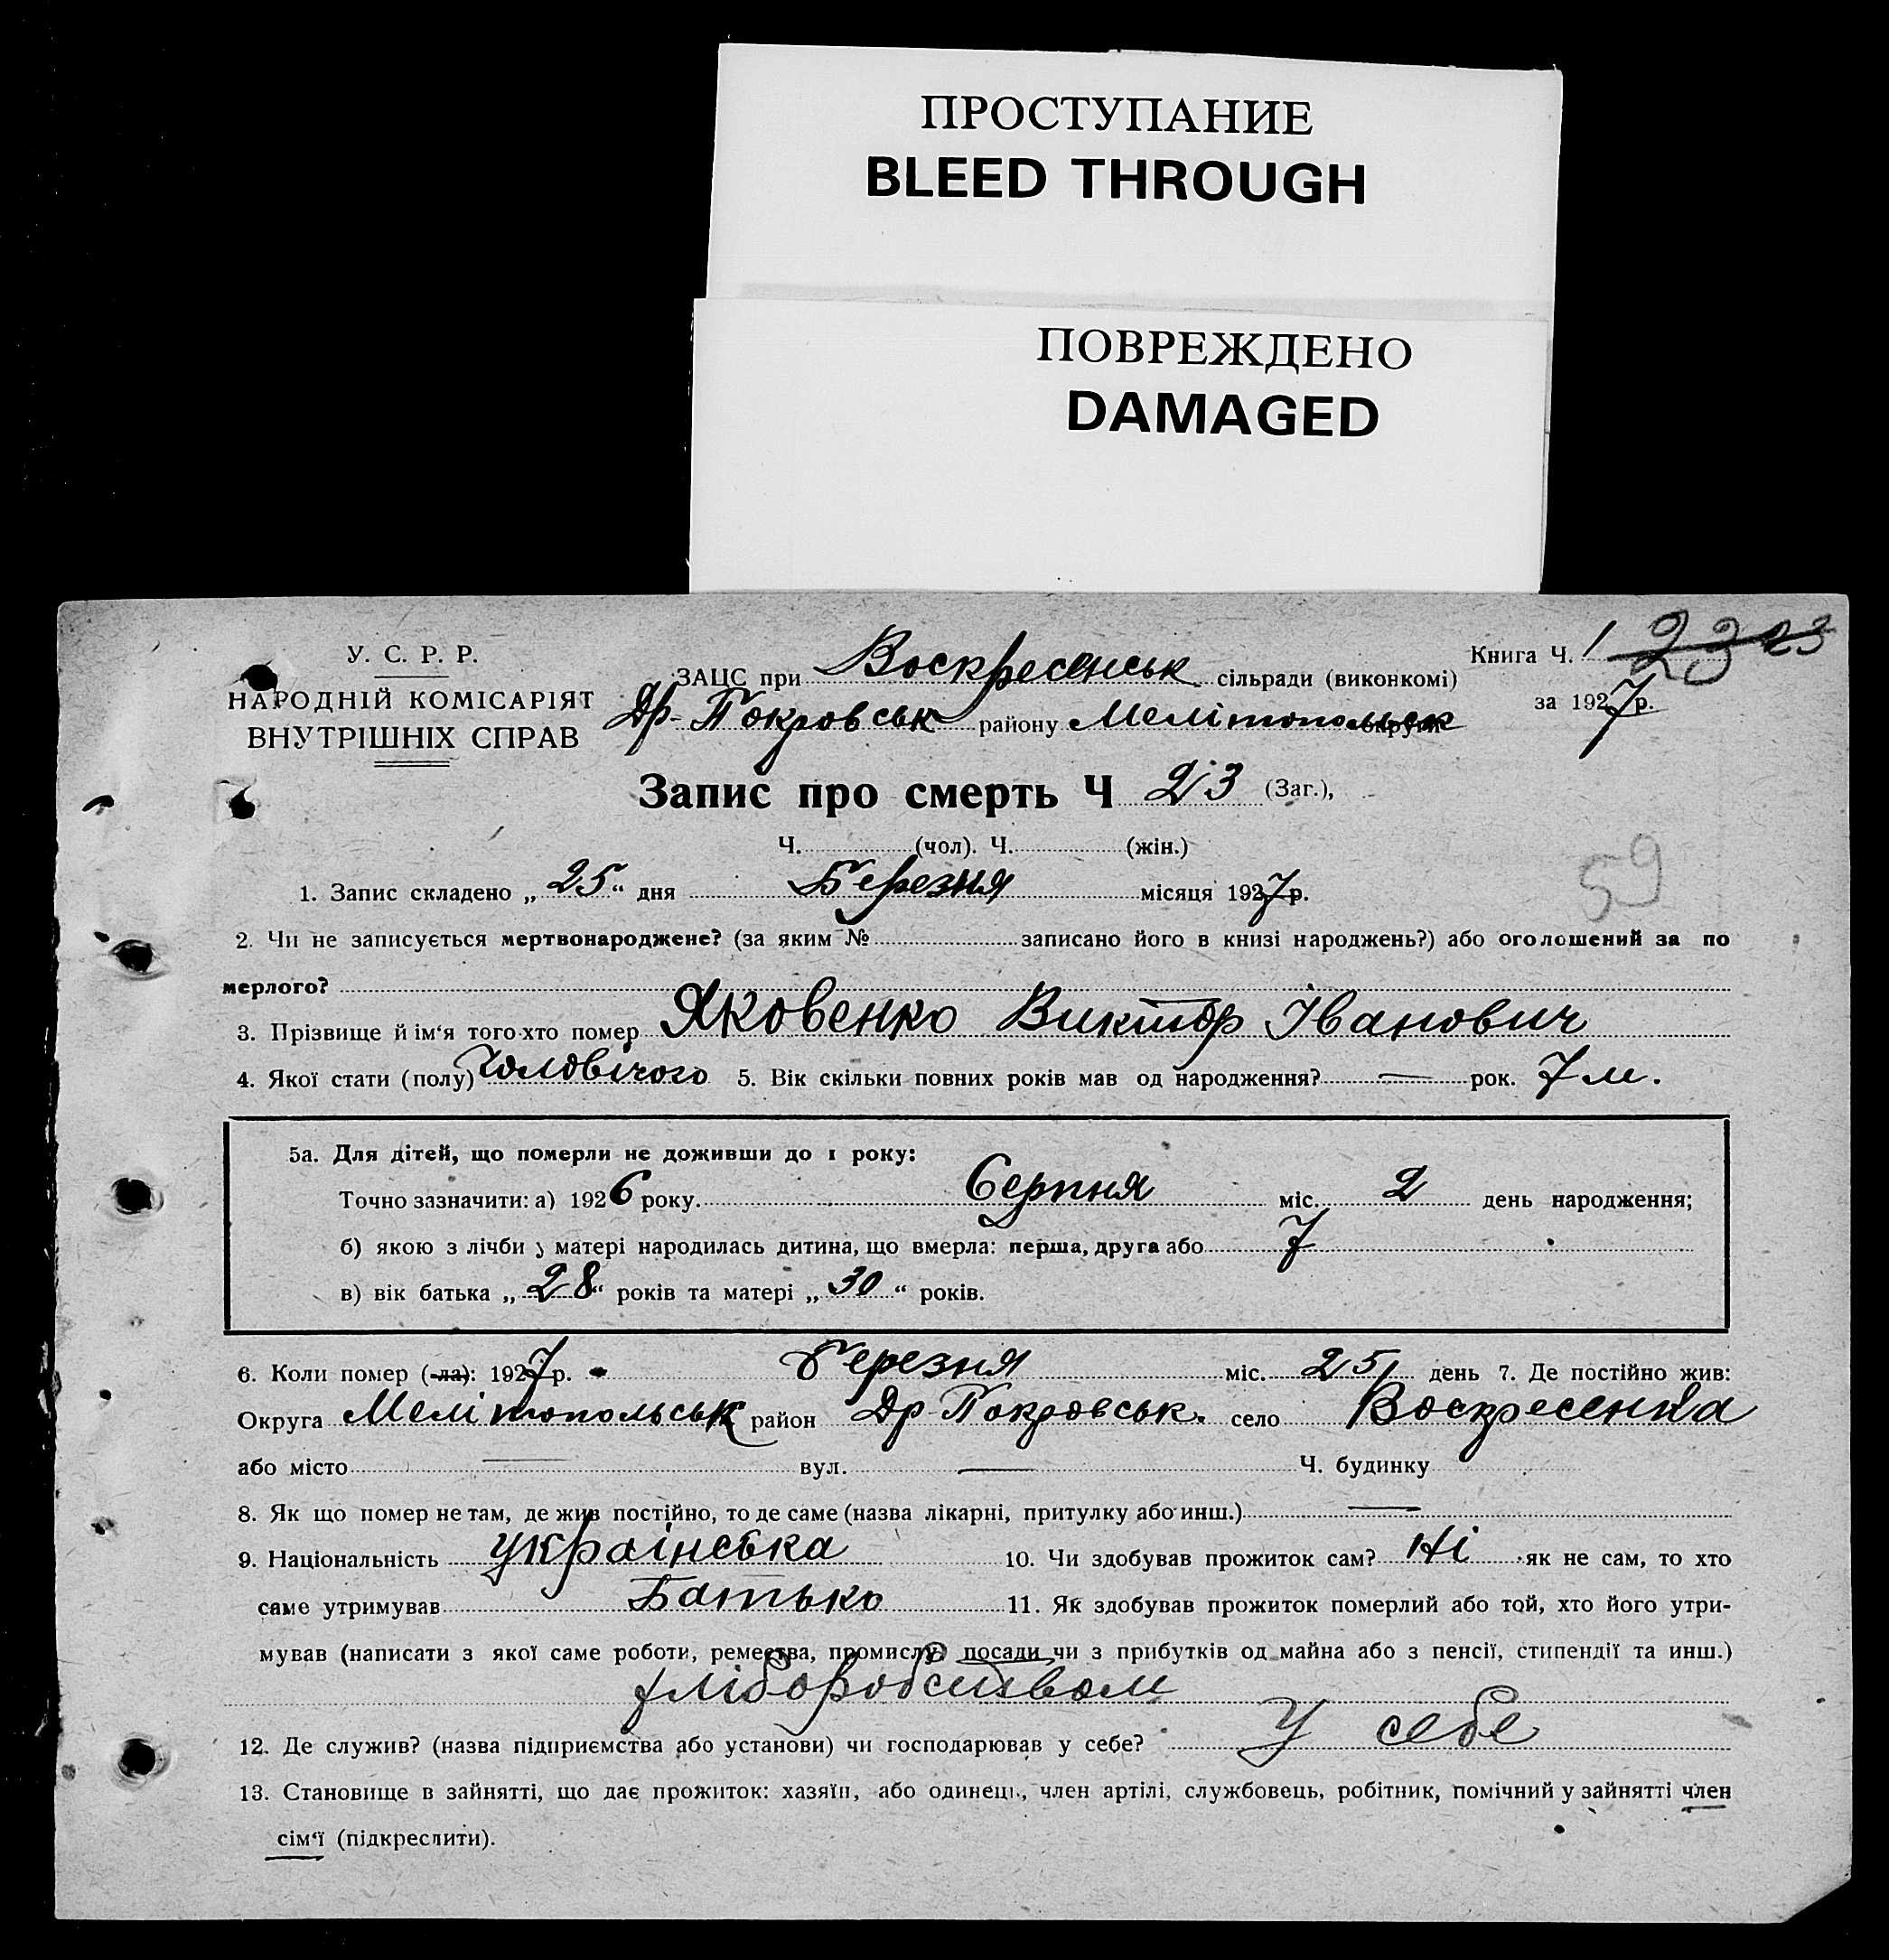 ПРОСТУПАНИЕ
BLEED THROUGH
ПОВРЕЖДЕНО
DAMAGED
У. С. Р. Р.
НАРОДНІЙ КОМІСАРІЯТ
ВНУТРІШНІХ СПРАВ
Книга Ч. 1 23 23
за 1927 р.
ЗАЦС при Воскресенськ сільради (виконкомі)
Др-Покровськ району Мелітопольськ округи
Запис про смерть Ч 23 (Заг.),
Ч. (чол). Ч. (жін.)
59
1. Запис складено „25“ дня Березня місяця 1927 р.
2. Чи не записується мертвонароджене? (за яким № записано його в книзі народжень?) або оголошений за по
мерлого?
3. Прізвище й ім‘я того хто помер Яковенко Виктор Іванович
4. Якої стати (полу) Чоловічого 5. Вік скільки повних років мав од народження? — рок. 7 м.
5а. Для дітей, що померли не доживши до 1 року:
Точно зазначити: а) 1926 року. Серпня міс. 2 день народження;
б) якою з лічби у матері народилась дитина, що вмерла: перша, друга або 7
в) вік батька „28“ років та матері „30“ років.
6. Коли помер (-ла): 1927 р. Березня міс. 25 день 7. Де постійно жив:
Округа Мелітопольськ район Др-Покровськ. село Воскресенка
або місто — вул. — Ч. будинку
8. Як що помер не там, де жив постійно, то де саме (назва лікарні, притулку або инш.) —
9. Національність українська 10. Чи здобував прожиток сам? Ні як не сам, то хто
саме утримував Батько 11. Як здобував прожиток померлий або той, хто його утри-
мував (написати з якої саме роботи, ремества, промислу, посади чи з прибутків од майна або з пенсії, стипендії та инш.)
хліборобством
12. Де служив? (назва підприємства або установи) чи господарював у себе? У себе
13. Становище в зайнятті, що дає прожиток: хазяїн, або одинець, член артілі, службовець, робітник, помічний у зайнятті член
сім‘ї (підкреслити).